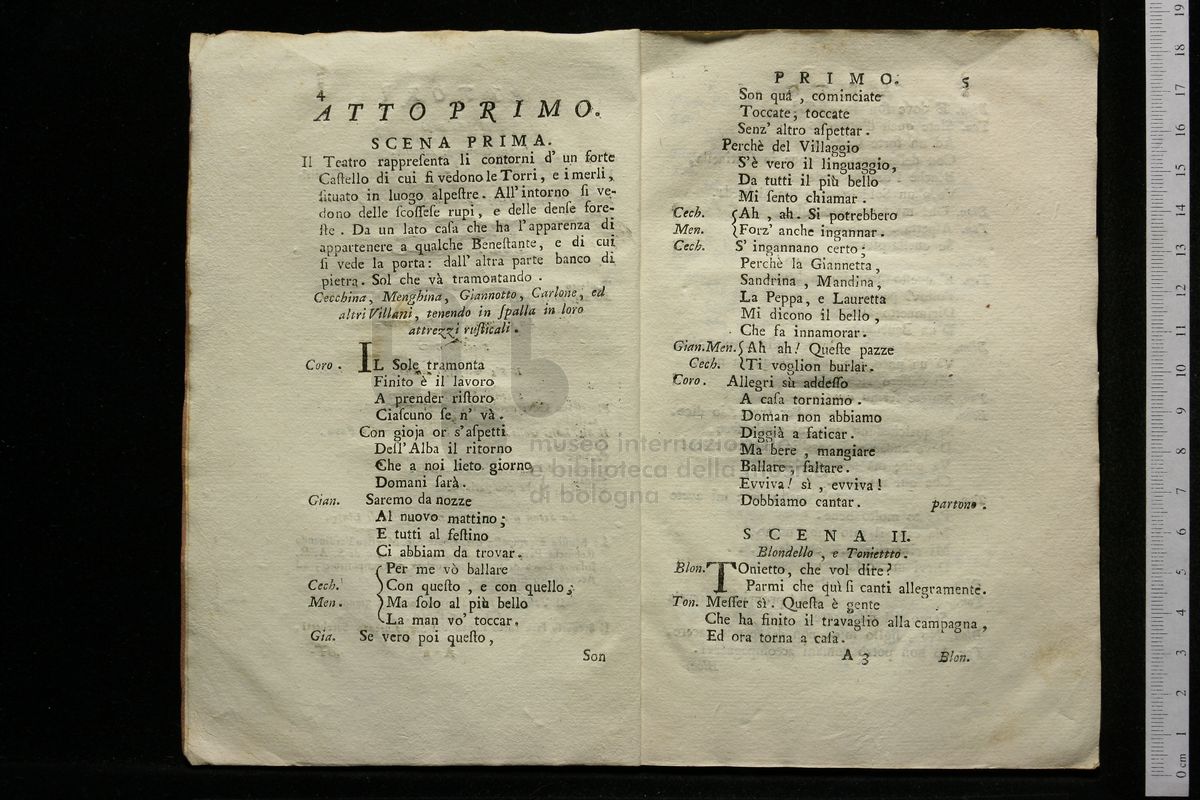 4
ATTO PRIMO.
SCENA PRIMA.
Il Teatro rappreſenta li contorni d' un forte
Caſtello di cui ſi vedono le Torri, e i merli,
ſituato in luogo alpeſtre. All' intorno ſi ve-
dono delle ſcoſſeſe rupi, e delle denſe fore-
ſte. Da un lato caſa che ha l'apparenza di
appartenere a qualche Beneſtante, e di cui
ſi vede la porta: dall' altra parte banco di
pietra. Sol che và tramontando.
Cecchina, Menghina, Giannotto, Carlone, ed
altri Villani, tenendo in ſpalla in loro
attrezzi ruſticali.
Coro. IL Sole tramonta
Finito è il lavoro
A prender riſtoro
Ciaſcuno ſe n' và.
Con gioja or s'aſpetti
Dell' Alba il ritorno
Che a noi lieto giorno
Domani ſarà.
Gian. Saremo da nozze
Al nuovo mattino;
E tutti al feſtino
Ci abbiam da trovar.
Per me vò ballare
Cech. Con queſto, e con quello;
Men. Ma ſolo al più bello
La man vo' toccar.
Gia. Se vero poi queſto,
Son
PRIMO. 5
Son quà, cominciate
Toccate, toccate
Senz' altro aſpettar.
Perchè del Villaggio
S'è vero il linguaggio,
Da tutti il più bello
Mi ſento chiamar.
Cech. Ah, ah. Si potrebbero
Men. Forz' anche ingannar.
Cech. S' ingannano certo;
Perchè la Giannetta,
Sandrina, Mandina,
La Peppa, e Lauretta
Mi dicono il bello,
Che fa innamorar.
Gian. Men. Ah ah! Queſte pazze
Cech. Ti voglion burlar.
Coro. Allegri sù addeſſo
A caſa torniamo.
Doman non abbiamo
Diggià a faticar.
Ma bere, mangiare
Ballare, ſaltare.
Evviva! sì, evviva!
Dobbiamo cantar. partono.
SCENA II.
Blondello, e Toniettto.
Blon. TOnietto, che vol dire?
Parmi che quì ſi canti allegramente.
Ton. Meſſer sì. Queſta è gente
Che ha finito il travaglio alla campagna,
Ed ora torna a caſa.
A 3 Blon.
museo internazionale
e biblioteca della musica
di bologna
0 cm 1 2 3 4 5 6 7 8 9 10 11 12 13 14 15 16 17 18 19